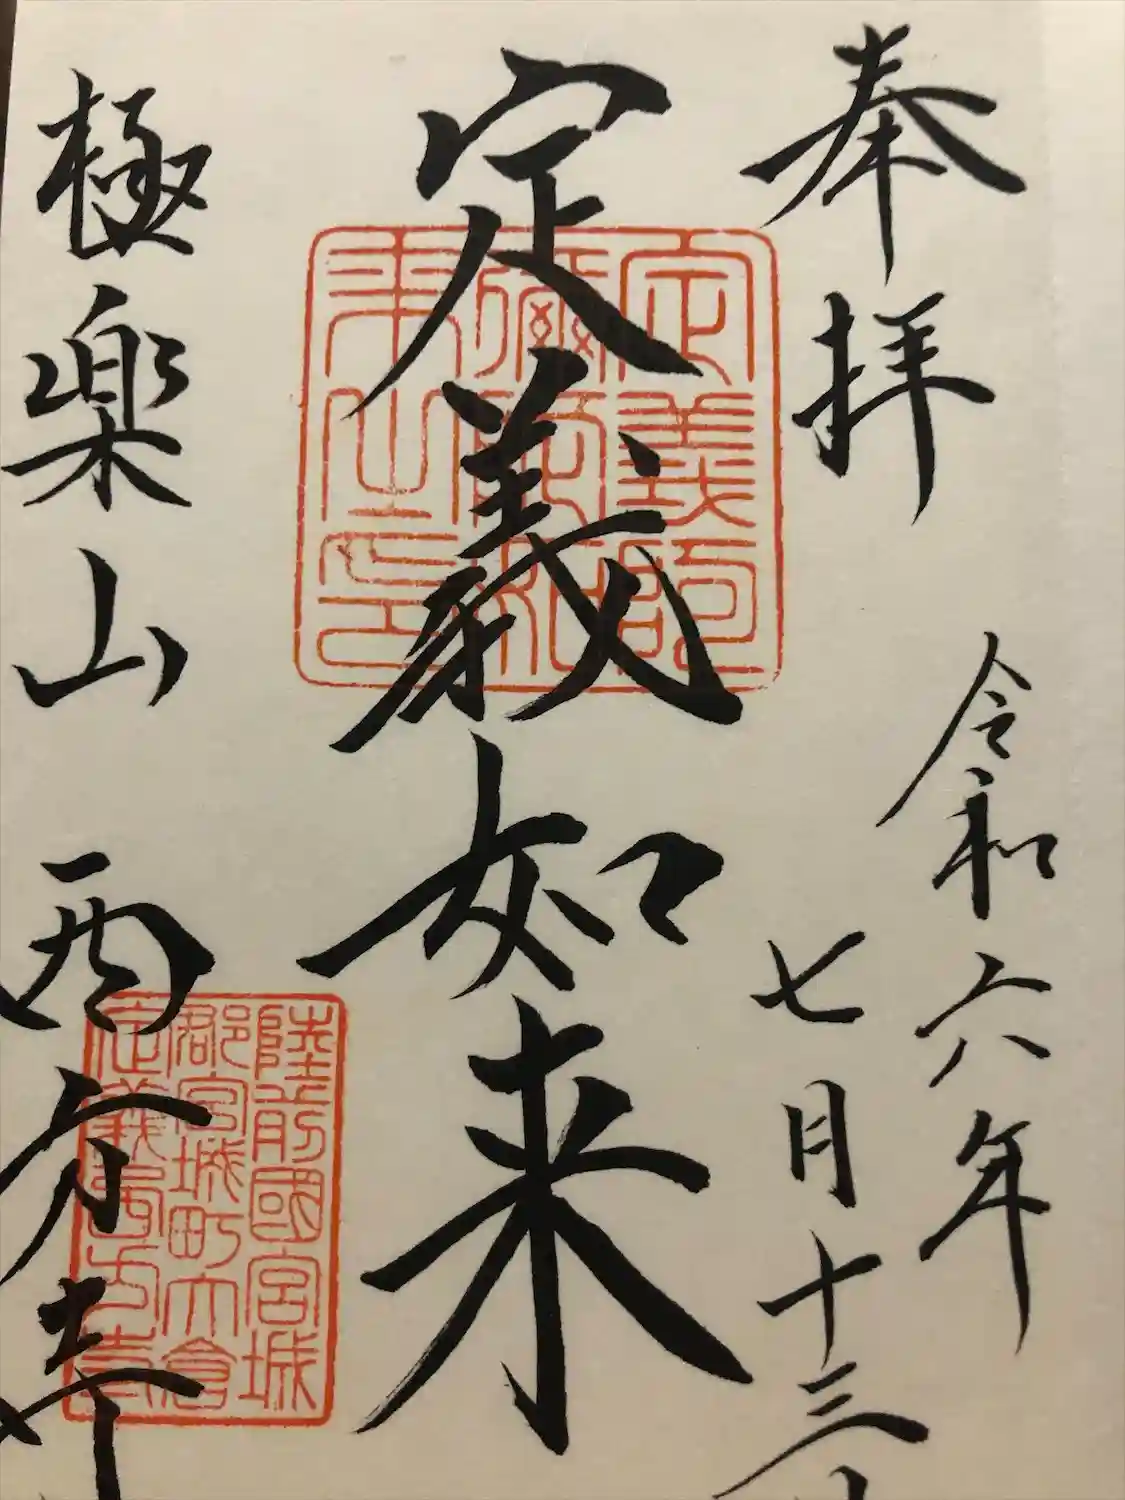 奉拝
令和六年
七月十三日
定義如来
定義阿
彌陀如
来山印
極楽山 西方寺
陸前國宮城
郡宮城町大倉
定義西方寺